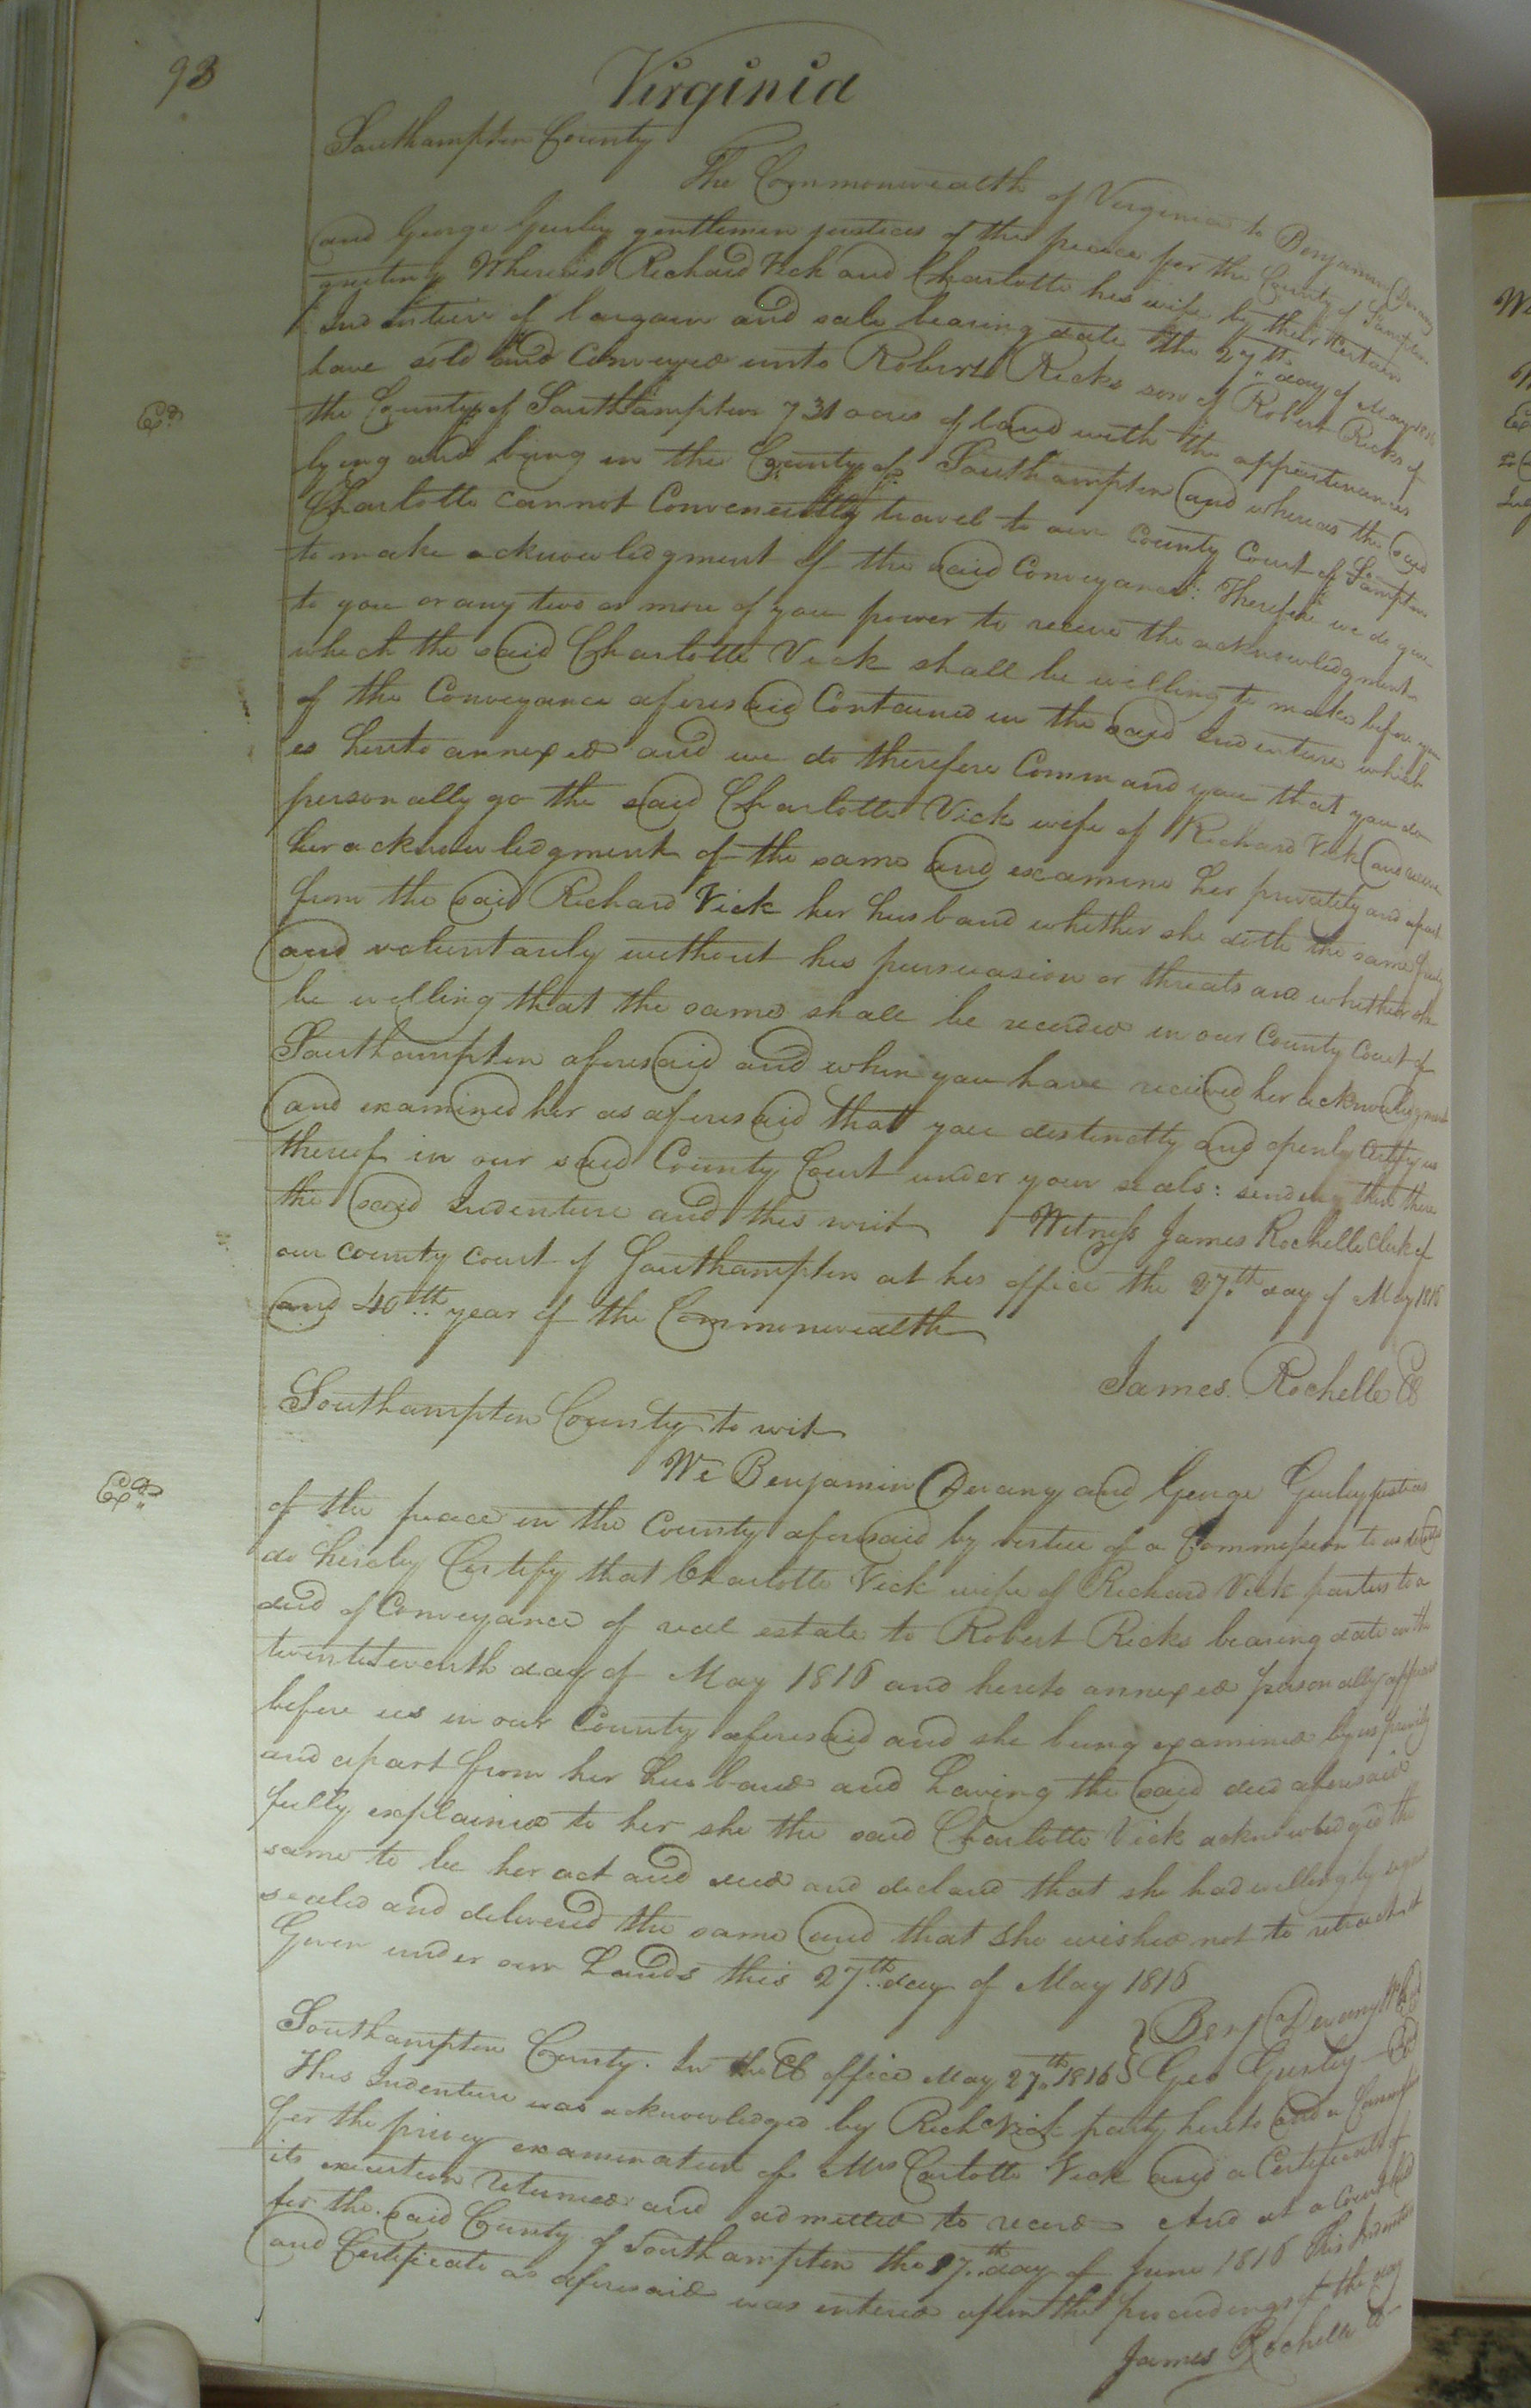 93
Virginia
Southampton County
The Commonwealth of Virginia to Benjamin Devany
and George Gurley gentlemen justices of the peace for the County of Sampton
greeting Whereas Richard Vick and Charlotte his wife by their Certain
Indenture of bargain and sale bearing date the 27th day of May 1816
have sold and Conveyed unto Robert Ricks son of Robert Ricks of
the County of Southampton 731 acres of land with the appurtenances
Ex.d
lying and being in the County of Southampton and whereas the said
Charlotte cannot Conveniently travel to our County Court of S'ampton
to make acknowledgment of the said Conveyance: Therefore we do give
to you or any two or more of you power to receive the acknowledgment
which the said Charlotte Vick shall be willing to make before you
of the Conveyance aforesaid Contained in the said Indenture which
is hereto annexed and we do therefore Command you that you do
personally go the said Charlotte Vick wife of Richard Vick and receive
her acknowledgment of the same and examine her privately and apart
from the said Richard Vick her husband whether she doth the same freely
and voluntarily without his pursuasion or threats and whether she
be willing that the same shall be recorded in our County Court of
Southampton aforesaid and when you have recieved her acknowledgment
and examined her as aforesaid that you distinctly and openly Certify us
thereof in our said County Court under your seals: sending then there
the said Indenture and this writ Witness James Rochelle Clerk of
our county court of Southampton at his office the 27th day of May 1816
and 40th year of the Commonwealth
James Rochelle CC
Southampton County to wit
We Benjamin Devany and George Gurley justices
Ex.d
of the peace in the County aforesaid by virtue of a Commission to us directed
do hereby Certify that Charlotte Vick wife of Richard Vick parties to a
deed of Conveyance of real estate to Robert Ricks bearing date on the
twentiseventh day of May 1816 and hereto annexed personally appeared
before us in our County aforesaid and she being examined by us privily
and apart from her husband and having the said deed aforesaid
fully explained to her she the said Charlotte Vick acknowledged the
same to be her act and deed and declared that she had willingly signed
sealed and delivered the same and that she wished not to retract it
Given under our hands this 27th day of May 1816
Benj Devany
Southampton County. In the CC office May 27th 1816 Geo Gurley
This Indenture was acknowledged by Richd Vick party hereto and a Commission
for the privy examination of Mrs Carlotte Vick and a Certificate of
its execution returned and admitted to record And at a Court held
for the said County of Southampton the 17th day of June 1816 This Indenture
and Certificate as aforesaid was entered upon the proceedings of the day
James Rochelle CC